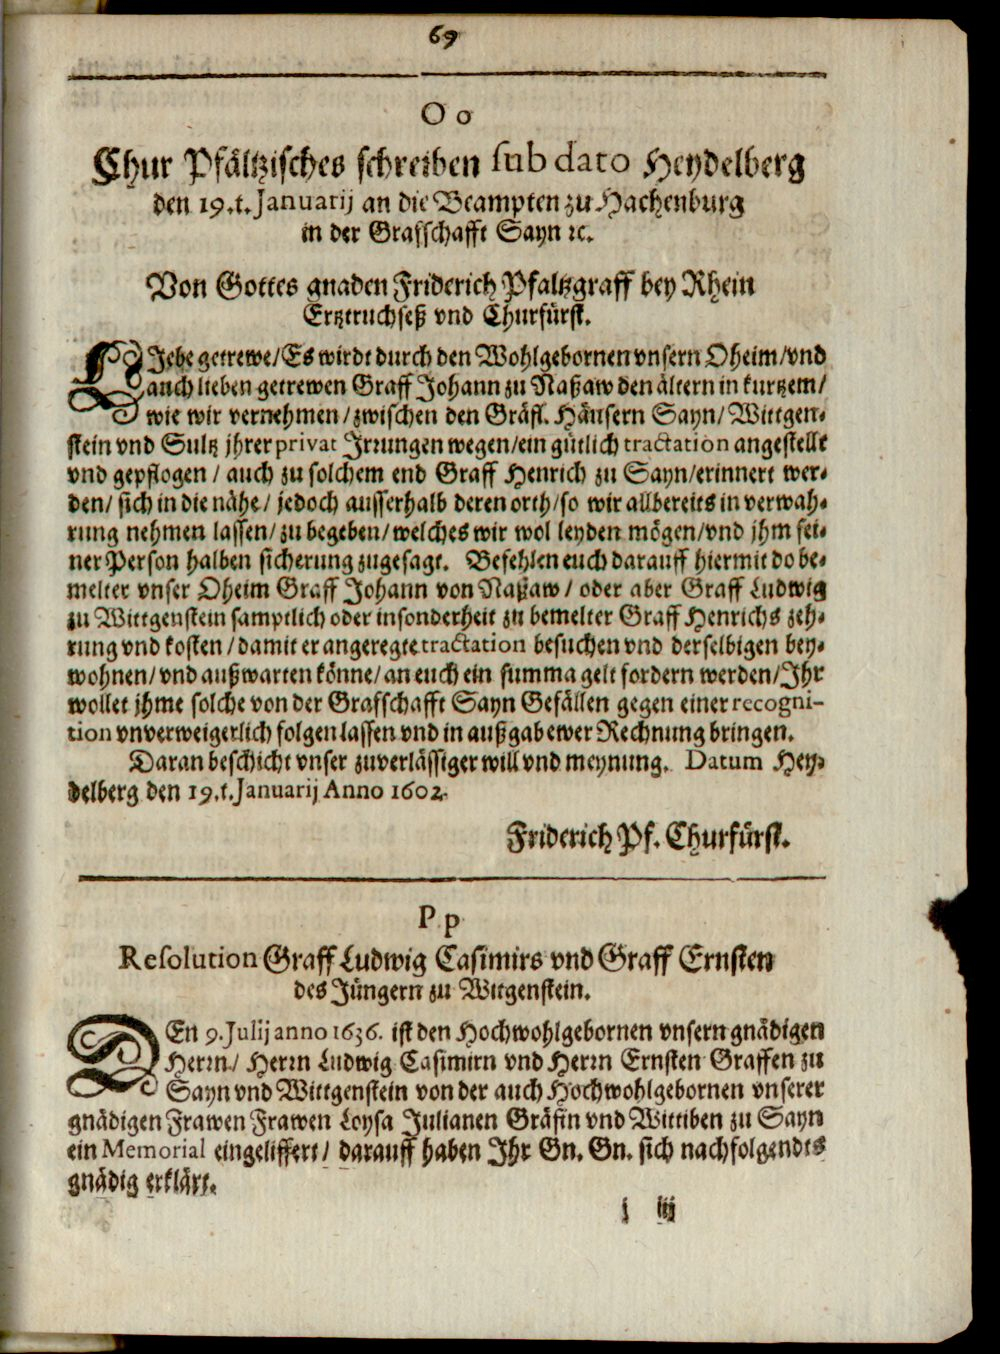 69
O o
Chur Pfältzisches schreiben sub dato Heydelberg
den 19.t. Januarij an die Beampten zu Hachenburg
in der Grafschafft Sayn ꝛc.
Von Gottes gnaden Friderich Pfaltzgraff bey Rhein
Ertztruchseß vnd Churfürst.
LJebe getrewe/Es wirdt durch den Wohlgebornen vnsern Oheim/vnd
auch lieben getrewen Graff Johann zu Naßaw den ältern in kurtzem/
wie wir vernehmen/zwischen den Gräfl. Häusern Sayn/Wittgen-
stein vnd Sultz jhrer privat Jrrungen wegen/ein gütlich tractation angestellt
vnd gepflogen/ auch zu solchem end Graff Henrich zu Sayn/erinnert wer-
den/ sich in die nähe/ jedoch ausserhalb deren orth/so wir allbereits in verwah-
rung nehmen lassen/zu begeben/welches wir wol leyden mögen/vnd jhm sei-
ner Person halben sicherung zugesagt. Befehlen euch darauff hiermit do be-
melter vnser Oheim Graff Johann von Naßaw/ oder aber Graff Ludwig
zu Wittgenstein samptlich oder insonderheit zu bemelter Graff Henrichs zeh-
rung vnd kosten/damit er angeregte tractation besuchen vnd derselbigen bey-
wohnen/vnd außwarten könne/an euch ein summa gelt fordern werden/Jhr
wollet jhme solche von der Grafschafft Sayn Gefällen gegen einer recogni-
tion vnverweigerlich folgen lassen vnd in außgab ewer Rechnung bringen.
Daran beschicht vnser zuverlässiger will vnd meynung. Datum Hey-
delberg den 19.t. Januarij Anno 1602.
Friderich Pf. Churfürst.
P p
Resolution Graff Ludwig Casimirs vnd Graff Ernsten
des Jüngern zu Witgenstein.
DEn 9. Julij anno 1636. ist den Hochwohlgebornen vnsern gnädigen
Herrn/ Herrn Ludwig Casimirn vnd Herrn Ernsten Graffen zu
Sayn vnd Wittgenstein von der auch Hochwohlgebornen vnserer
gnädigen Frawen Frawen Loysa Julianen Gräfin vnd Wittiben zu Sayn
ein Memorial eingeliffert/ darauff haben Jhr Gn. Gn. sich nachfolgendts
gnädig erklärt.
j iij